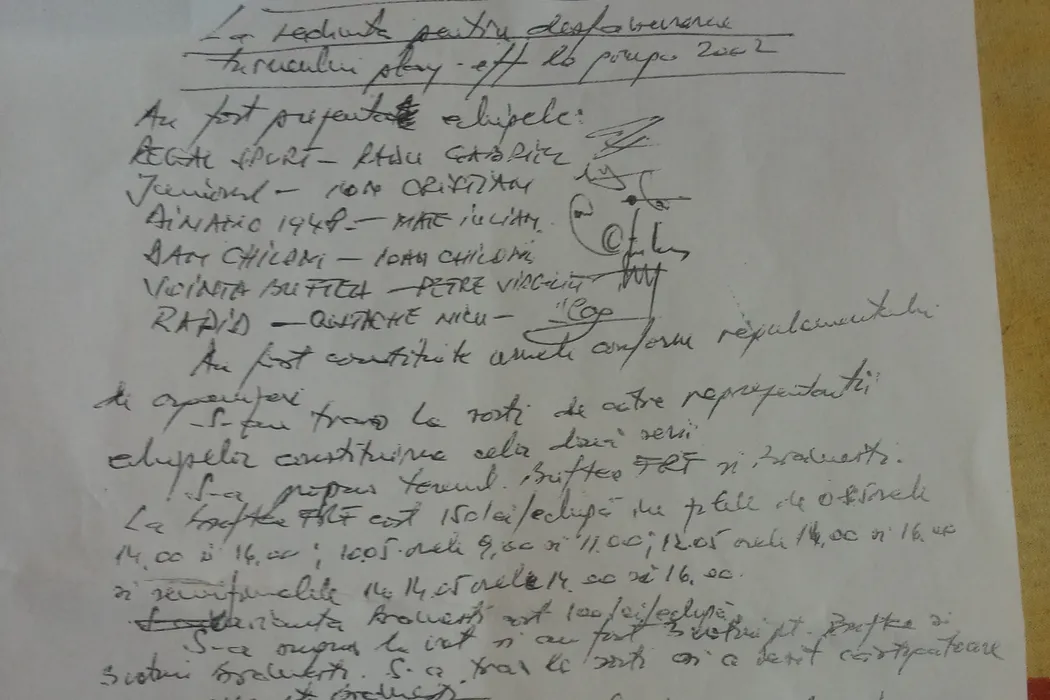 La sedinta pentru desfasurarea
turneului play-off lb grupa 2002
Au fost prezente echipele:
REGAL SPORT - RADU GABRIEL
Juniorul - CRISTIAN
DINAMO 1948 - MATE IULIAN
DAN CHILOM - IOAN CHILOM
VOINTA BUFTEA - PETRE VIRGILIU
RAPID - NICU -
Au fost constituite conform regulamentului
de organizare
S-au tras la sorti de catre reprezentantii
echipelor constituirea celor două serii
S-a propus terenul Buftea FRF si Braduesti.
La Buftea FRF cost 150lei/echipă in zilele de orele
14,00 si 16,00; 10.05 orele 9,00 si 11.00; 12.05 orele 14,00 si 16,00
si semifinalele 14.05 orele 14.00 si 16,00.
varianta Braduesti cost 100/lei/echipă
S-a supus la vot si au fost 3 voturi pt. Buftea si
3 voturi Braduesti. S-a tras la sorti si a iesit castigatoare
Braduesti